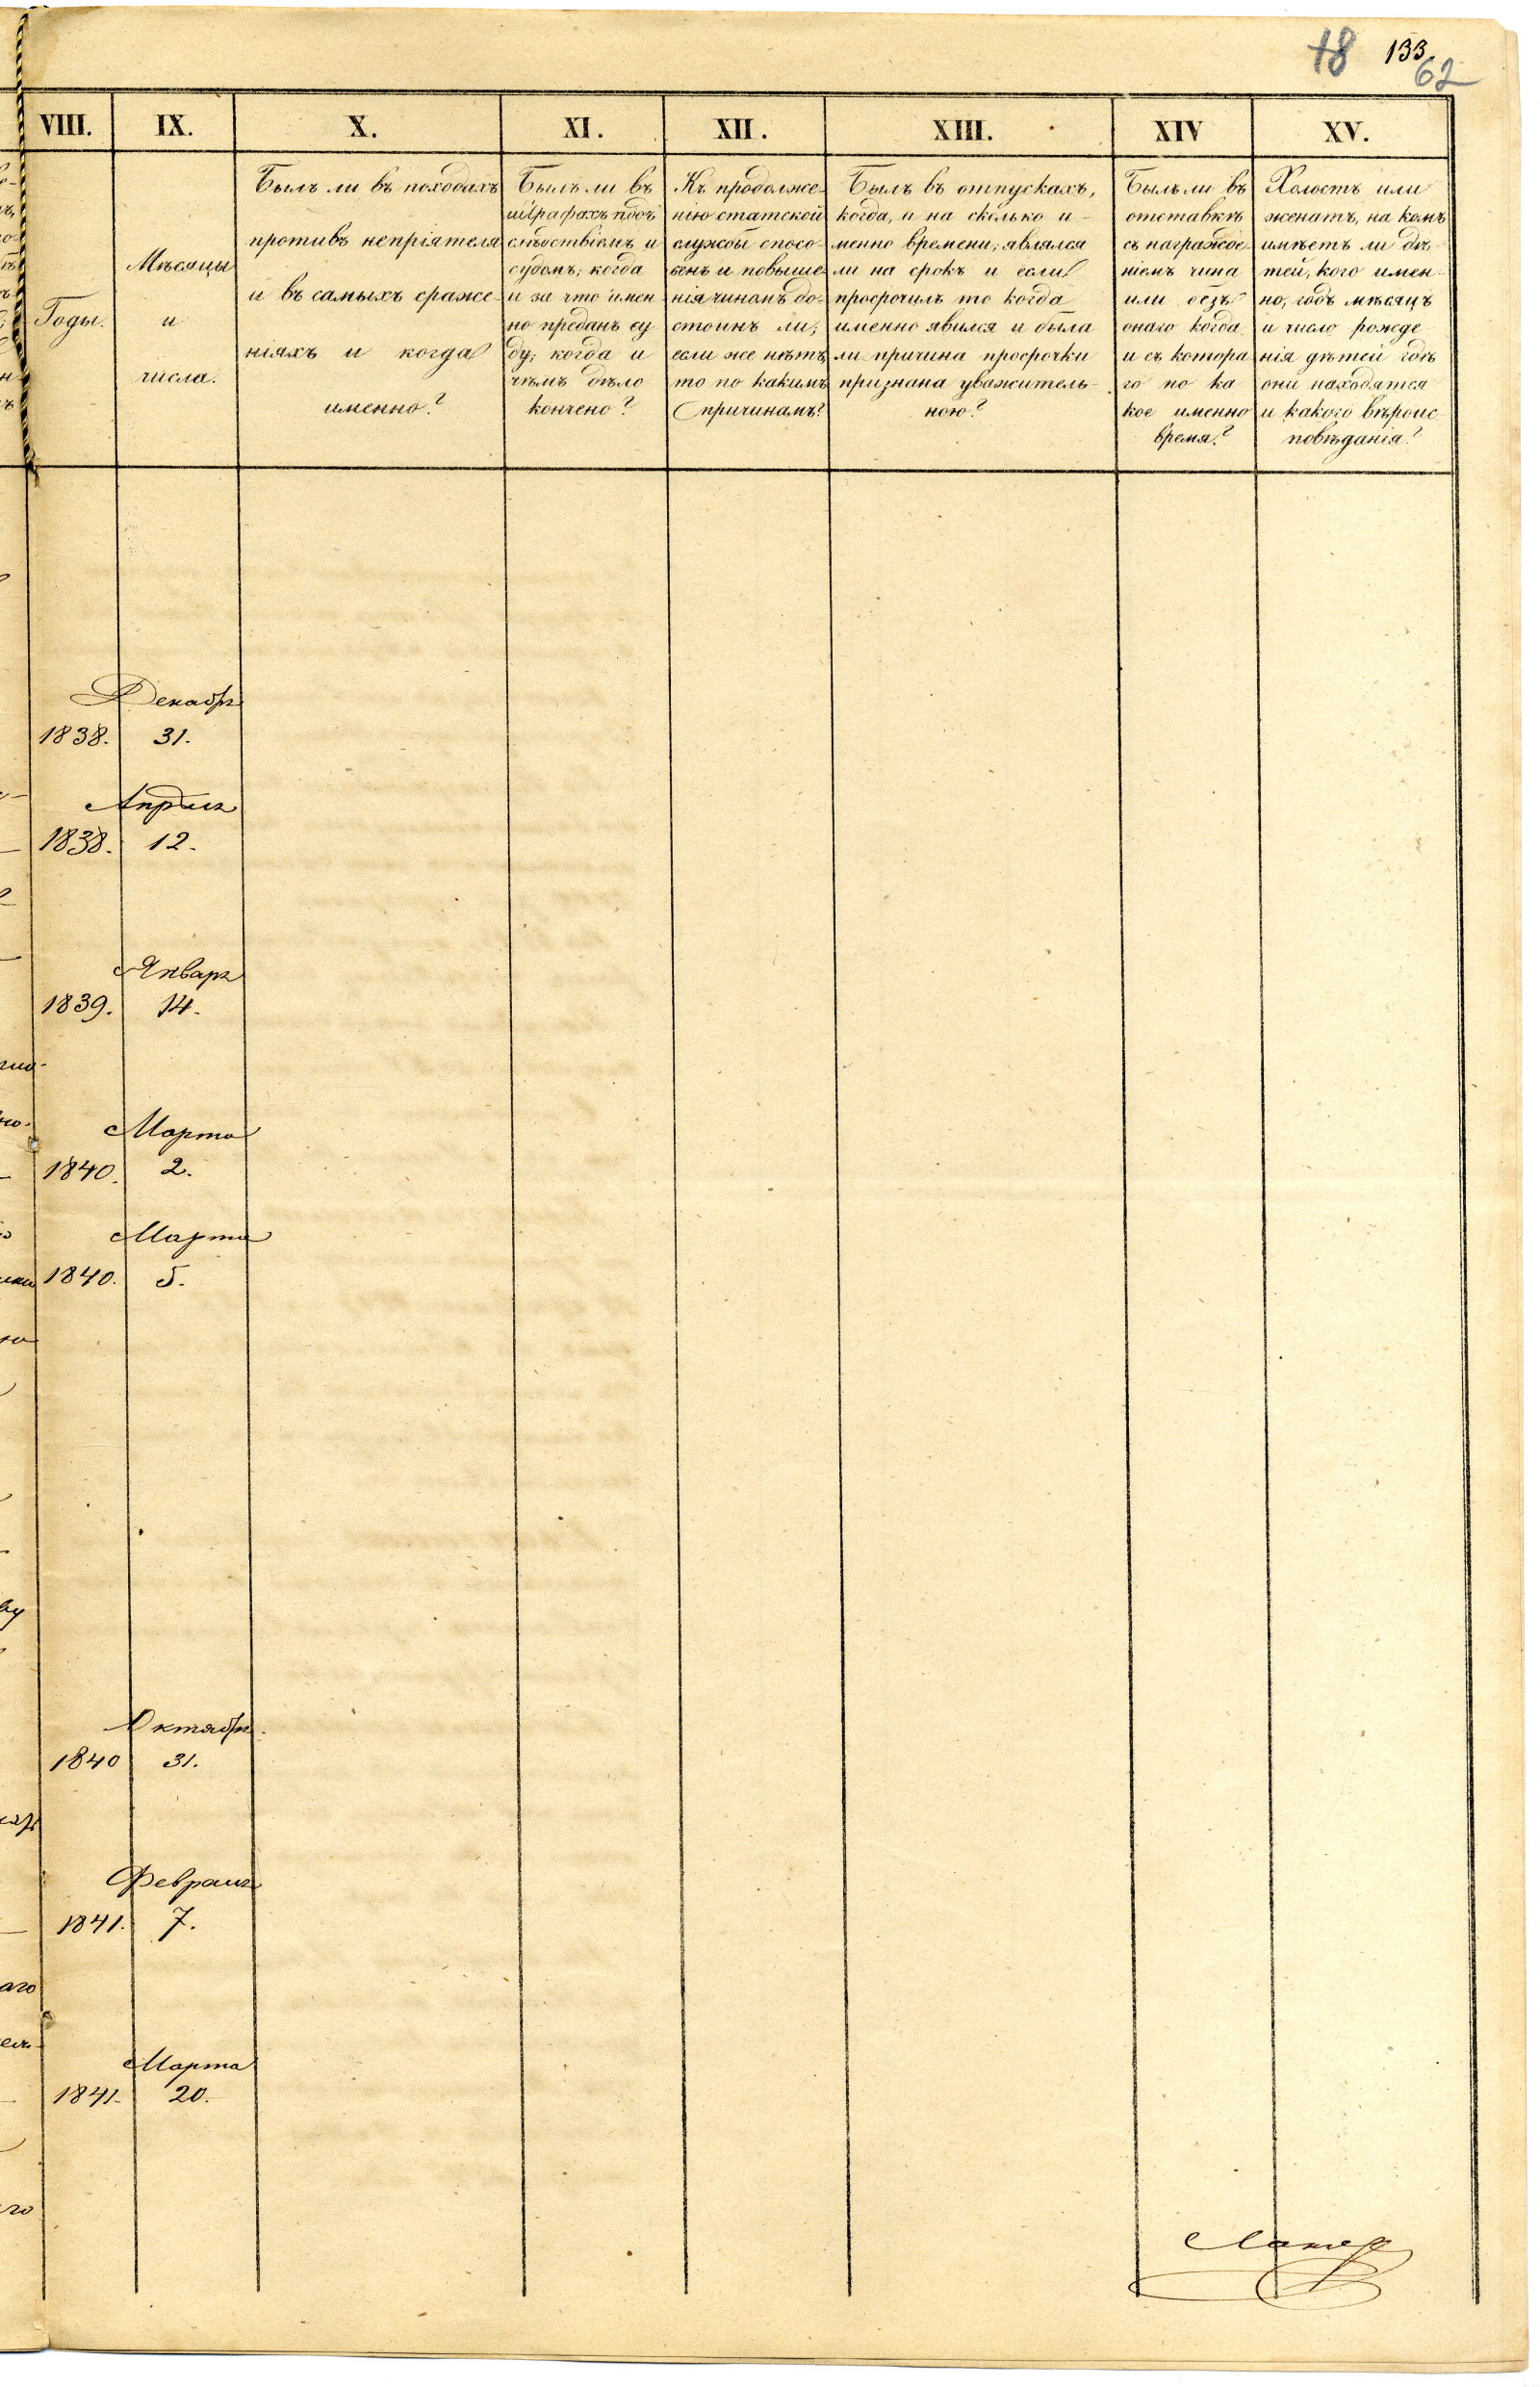 18 133.
62
VIII. IX. X. XI. XII. XIII. XIV XV.
Годы.
Мѣсяцы
и
числа.
Былъ ли въ походахъ
противъ непріятеля
и въ самыхъ сраже-
ніяхъ и когда
именно?
Былъ ли въ
штрафахъ подъ
слѣдствіемъ и
судомъ; когда
и за что имен
но преданъ су
ду; когда и
чѣмъ дѣло
кончено?
Къ продолже-
нію статской
службы спосо-
бенъ и повыше-
нія чиномъ до-
стоинъ ли;
если же нѣтъ,
то по какимъ
причинамъ?
Былъ въ отпускахъ,
когда, и на сколько и-
менно времени; являлся
ли на срокъ и если
просрочилъ то когда
именно явился и была
ли причина просрочки
признана уважитель-
ною?
Былъ ли въ
отставкѣ
съ награжде-
ніемъ чина
или безъ
онаго когда
и съ котора
го по ка
кое именно
время?
Холостъ или
женатъ, на комъ
имѣетъ ли дѣ-
тей, кого имен-
но; годъ мѣсяцъ
и число рожде-
нія дѣтей гдѣ
они находятся
и какого вѣроис-
повѣданія?
Декабря
1838. 31.
Апрѣля
1838. 12.
Января
1839. 14.
Марта
1840. 2.
Марта
1840. 5.
Октября
1840 31.
Февраля
1841. 7.
аго
Марта
1841. 20.
го